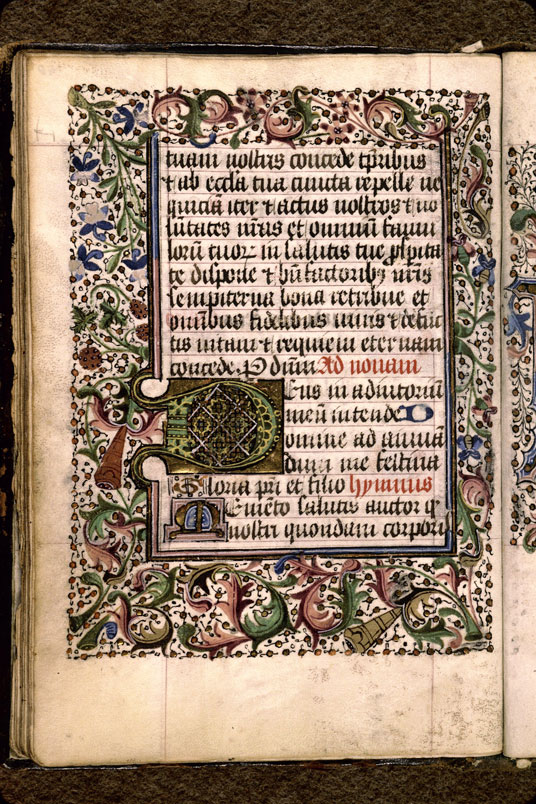 tuam nostris concede tpribus
⁊ ab ecclia tua cuncta repelle ne
quicia iter ⁊ actus nostros ⁊ uo
lutates nris et omnium famu
lorũ tuoꝝ in salutis tue ꝓspita
te dispone ⁊ bñfactoribꝰ nris
sempiterna bona retribue et
omibus fidelibus uiuis ⁊ defuc
tis uitam ⁊ requiem in eternam
concede. P dñum Ad nonam
Deus in adiutoriũ
meũ intende
Domine ad iuuan
dum me festina
Gloria pri et filio hymnus
Memeto salutis auctor q
nostri quondam corporis